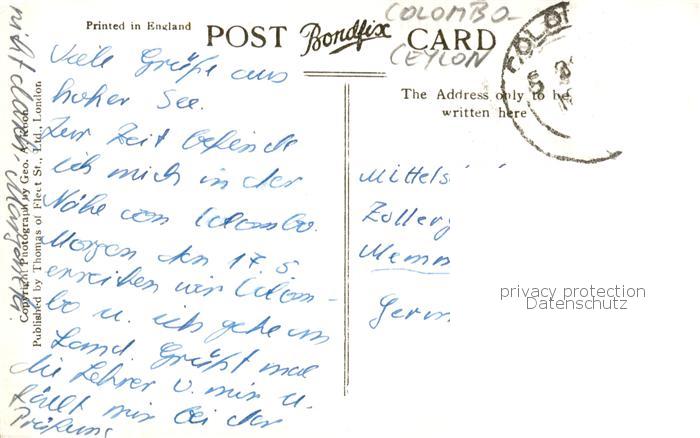 Printed in England
POST Bondfix CARD
COLOMBO-
CEYLON
COLO
The Address only to be
written here
Copyright Photograph by Geo. A.
Published by Thomas of Fleet St., Ltd., London
Viele Grüße aus
hoher See.
Zur Zeit befinde
ich mich in der
Nähe von Colombo.
Morgen den 17.5.
erreichen wir Colom-
bo u. ich gehe an
Land. Grüßt mal
die Lehrer v. mir u.
fällt mir bei der
Prüfung
nicht durch.
Mittels
Zollerg
Memm
Germ
privacy protection
Datenschutz